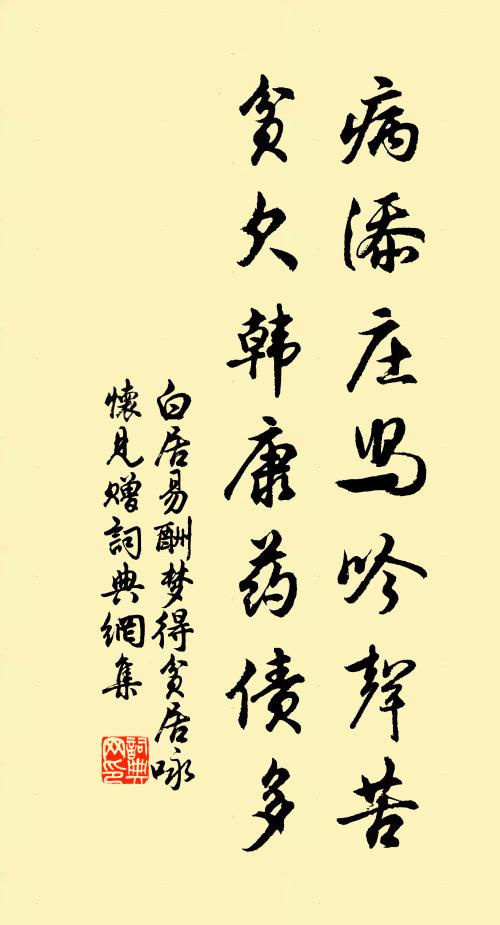 病添庄舄吟聲苦
贫欠韩康药债多
白居易酬梦得贫居咏
懷見赠詞典網集
詞典
网印